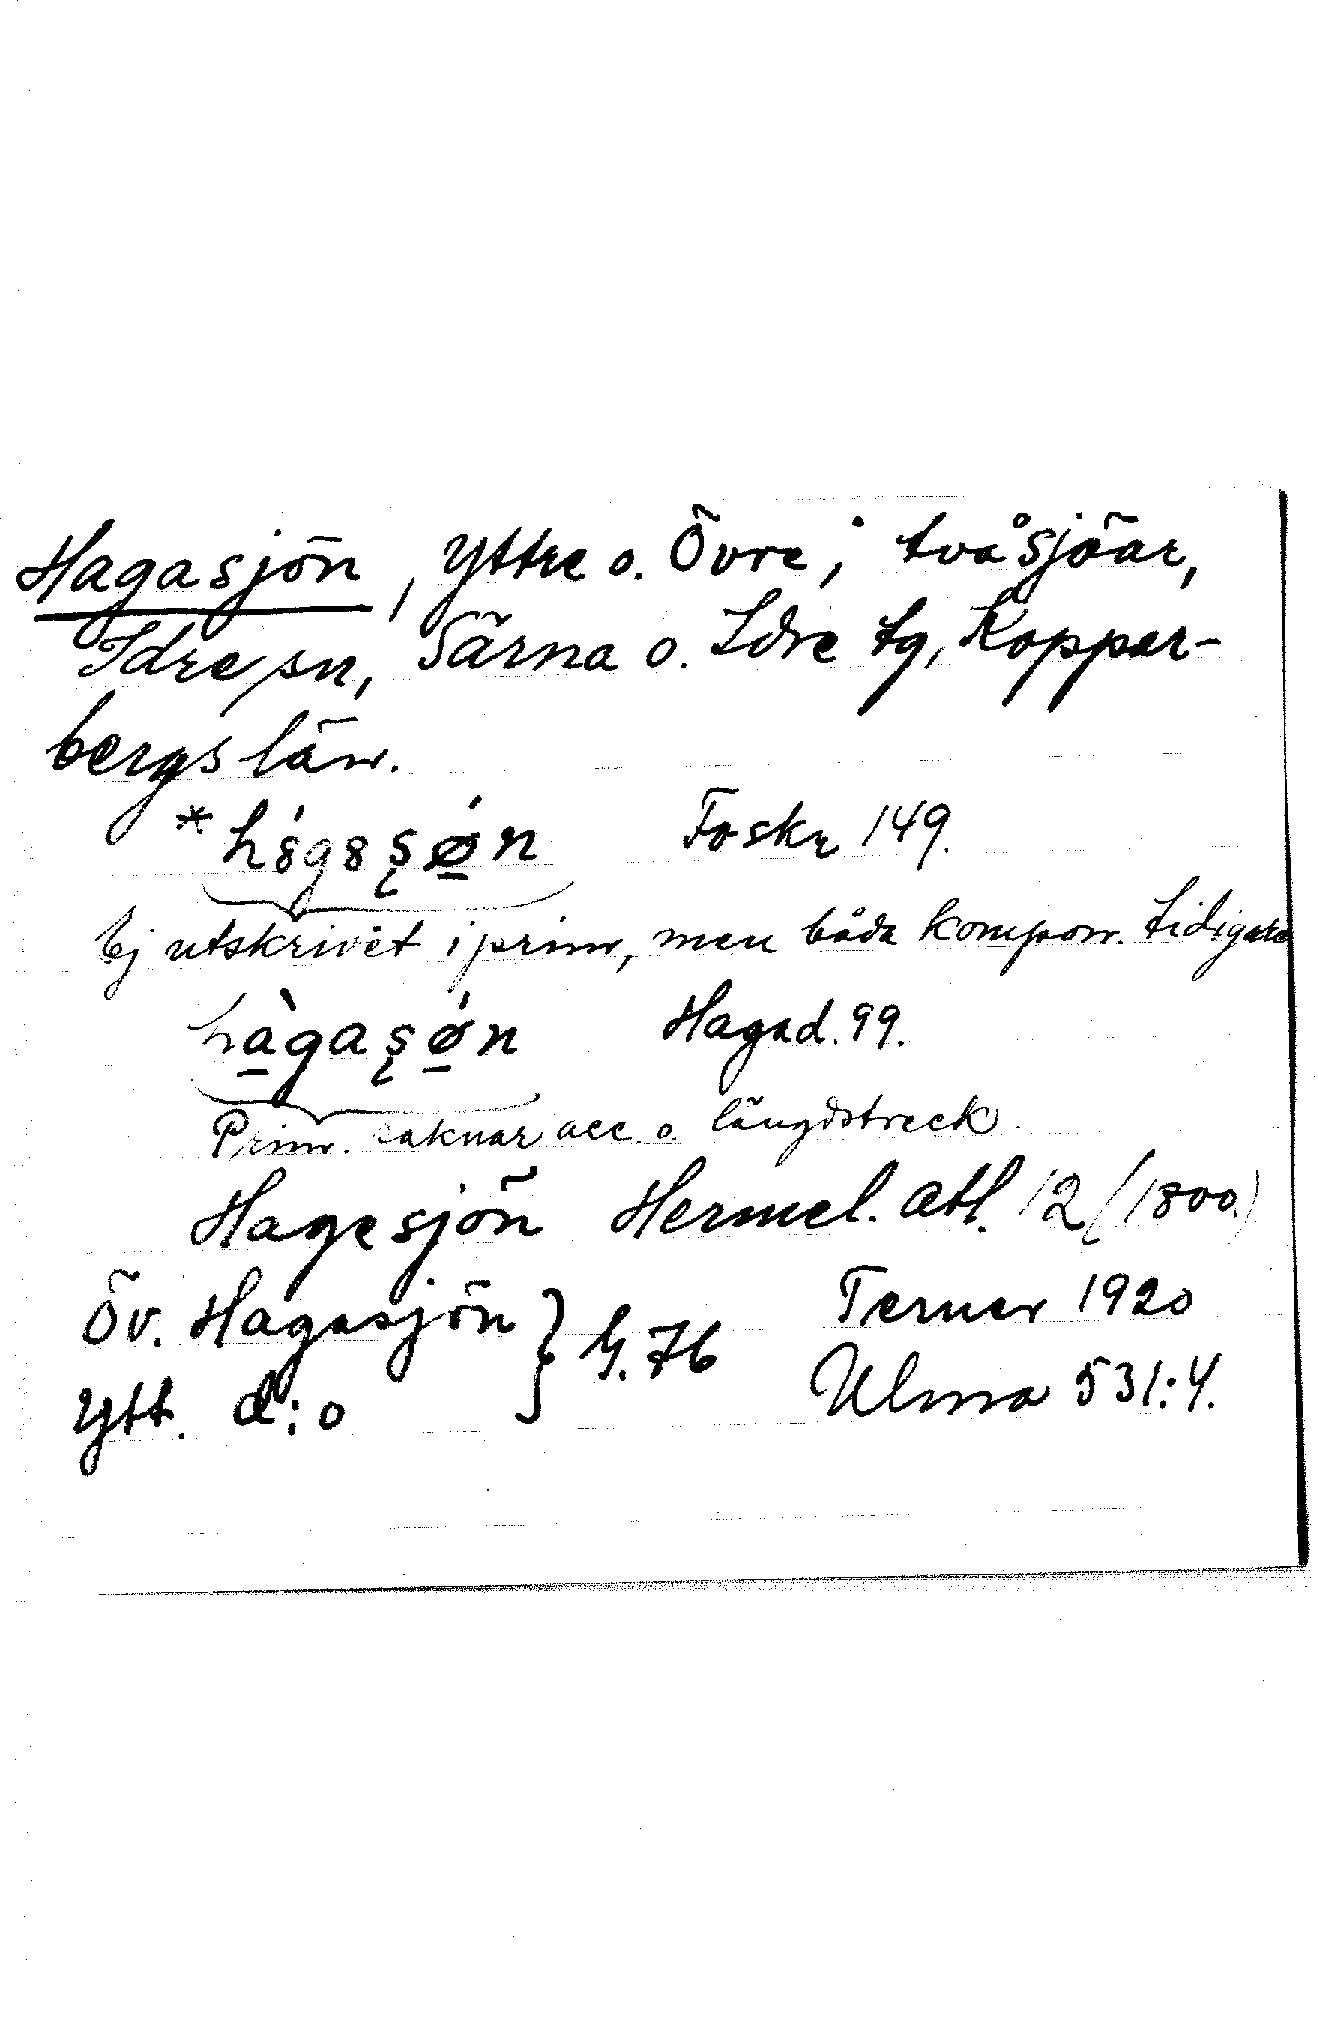 Hagasjön, Yttre o. Övre; två sjöar,
Idre sn, Särna o. Idre tg, Koppar-
bergs län.
*hógasøn Foskr 149.
Ej utskrivet i prim, men båda kompon. tidigare
hàgasøn Hagad. 99.
Prim. saknar acc o längdstreck
Hagesjön Hermel. atl. 12 (1800)
Öv. Hagasjön } G. 76 Terner 1920
Ytt. d:o Ulma 531:4.